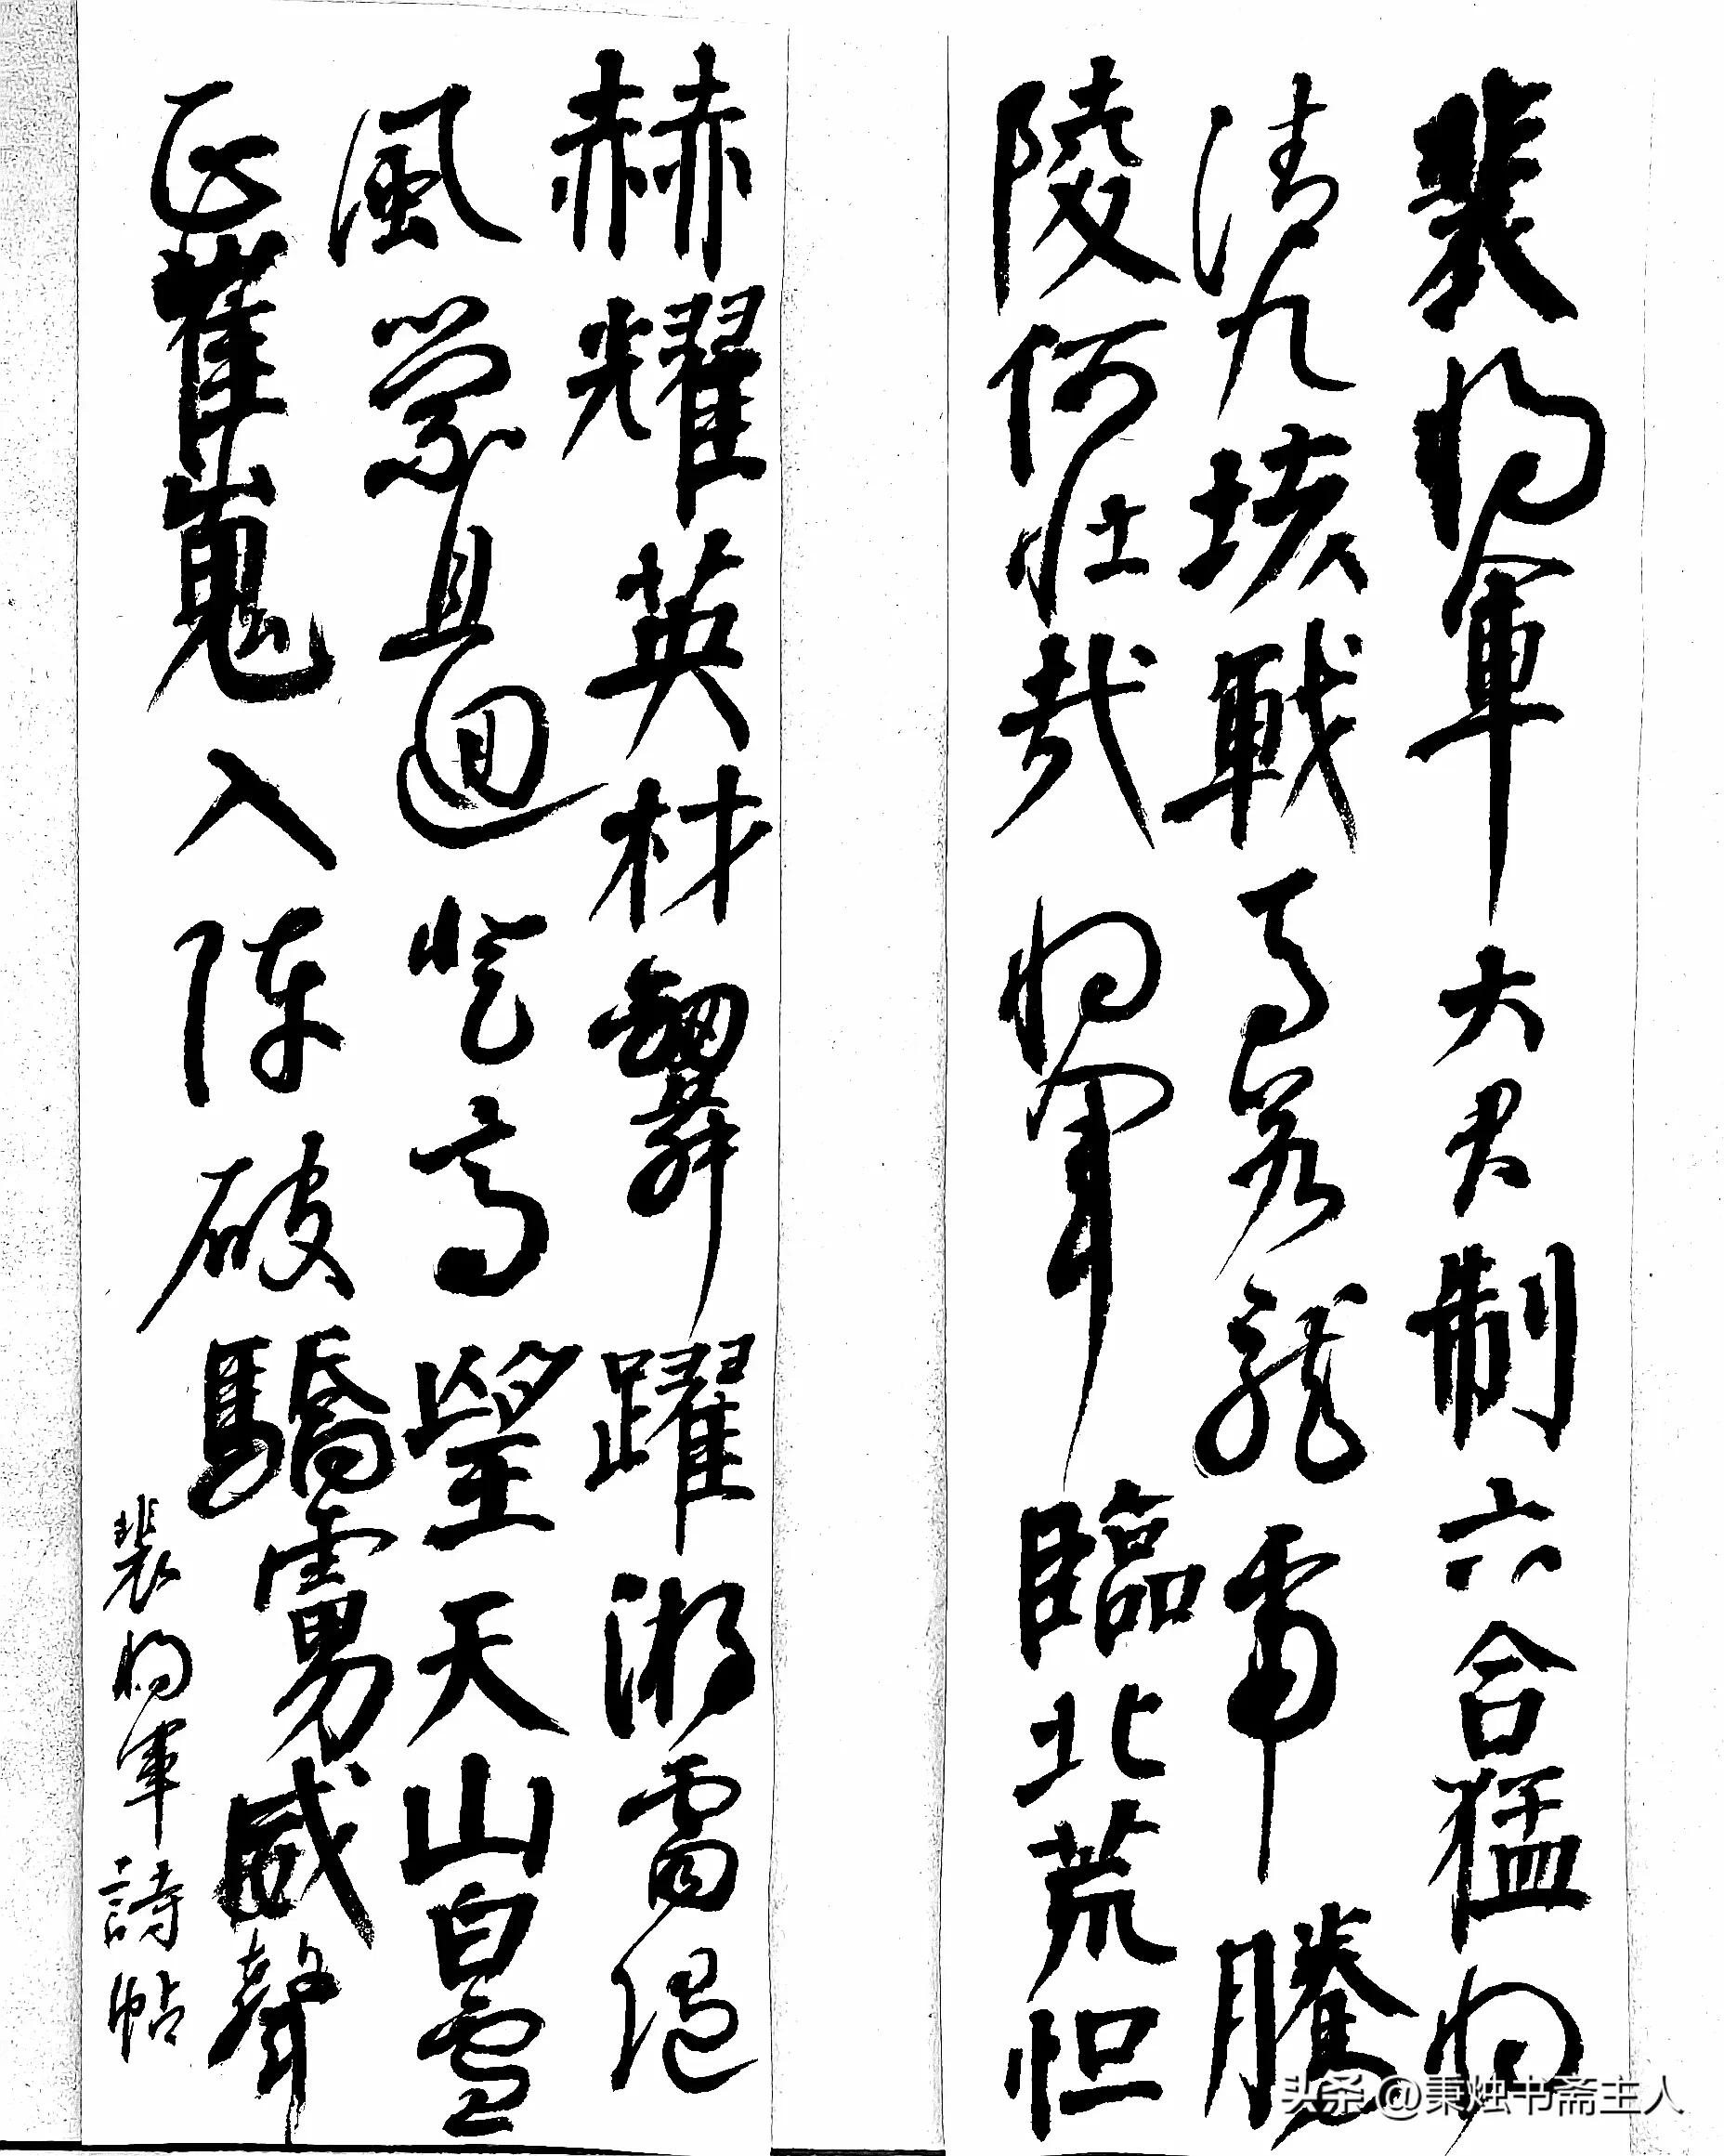 裴将軍大君制六合猛将
清九垓戰馬若龍虎騰
陵何壯哉将軍臨北荒恒
赫耀英材劒舞躍游雷随
風縈且迴登高望天山白雪
正崔嵬入陣破驕虜威聲
裴将軍詩帖
头条 @秉烛书斋主人